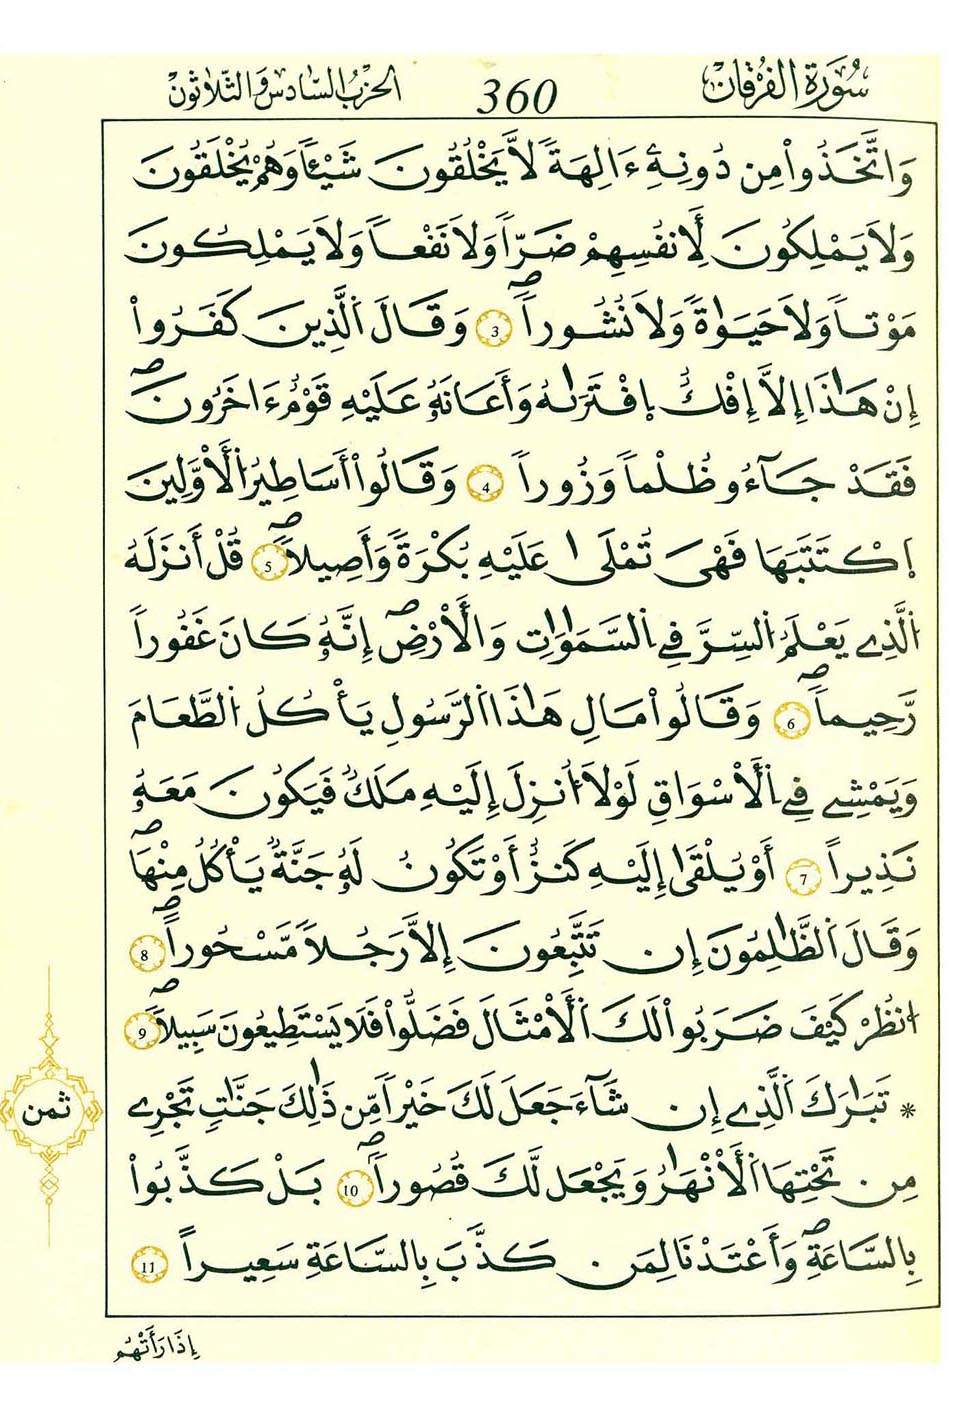 سُورَةُ الْفُرْقَانِ 360 الحِزْبُ السَّادِسُ وَالثَّلاَثُونَ
وَاتَّخَذُواْ مِن دُونِهِۦٓ ءَالِهَةً لاَّ يَخْلُقُونَ شَيْـٔاً وَهُمْ يُخْلَقُونَ
وَلاَ يَمْلِكُونَ لِأَنفُسِهِمْ ضَرّاً وَلاَ نَفْعاً وَلاَ يَمْلِكُونَ
مَوْتاً وَلاَ حَيَوٰةً وَلاَ نُشُوراًۖ 3 وَقَالَ اَ۬لَّذِينَ كَفَرُوٓاْ
إِنْ هَٰذَآ إِلَّآ إِفْكٌ اِ۪فْتَر۪ىٰهُ وَأَعَانَهُۥ عَلَيْهِ قَوْمٌ ءَاخَرُونَۖ
فَقَدْ جَآءُو ظُلْماً وَزُوراً 4 وَقَالُوٓاْ أَسَٰطِيرُ اُ۬لْأَوَّلِينَ
اَ۪كْتَتَبَهَا فَهْىَ تُمْلَىٰ عَلَيْهِ بُكْرَةً وَأَصِيلاًۖ 5 قُلْ أَنزَلَهُ
اُ۬لَّذِے يَعْلَمُ اُ۬لسِّرَّ فِے اِ۬لسَّمَٰوَٰتِ وَالْأَرْضِۖ إِنَّهُۥ كَانَ غَفُوراً
رَّحِيماًۖ 6 وَقَالُواْ مَالِ هَٰذَا اَ۬لرَّسُولِ يَأْكُلُ اُ۬لطَّعَامَ
وَيَمْشِے فِے اِ۬لْأَسْوَاقِ لَوْلَآ أُنزِلَ إِلَيْهِ مَلَكٌ فَيَكُونَ مَعَهُۥ
نَذِيراً 7 أَوْ يُلْقَىٰٓ إِلَيْهِ كَنزٌ أَوْ تَكُونُ لَهُۥ جَنَّةٌ يَأْكُلُ مِنْهَاۖ
وَقَالَ اَ۬لظَّٰلِمُونَ إِن تَتَّبِعُونَ إِلاَّ رَجُلاً مَّسْحُوراًۖ 8
اَ۟نظُرْ كَيْفَ ضَرَبُواْ لَكَ اَ۬لْأَمْثَٰلَ فَضَلُّواْ فَلاَ يَسْتَطِيعُونَ سَبِيلاًۖ 9
* تَبَٰرَكَ اَ۬لَّذِےٓ إِن شَآءَ جَعَلَ لَكَ خَيْراً مِّن ذَٰلِكَ جَنَّٰتٍ تَجْرِے
ثمن
مِن تَحْتِهَا اَ۬لْأَنْهَٰرُ وَيَجْعَل لَّكَ قُصُوراًۖ 10 بَلْ كَذَّبُواْ
بِالسَّاعَةِۖ وَأَعْتَدْنَا لِمَن كَذَّبَ بِالسَّاعَةِ سَعِيراً 11
إِذَا رَأَتْهُم